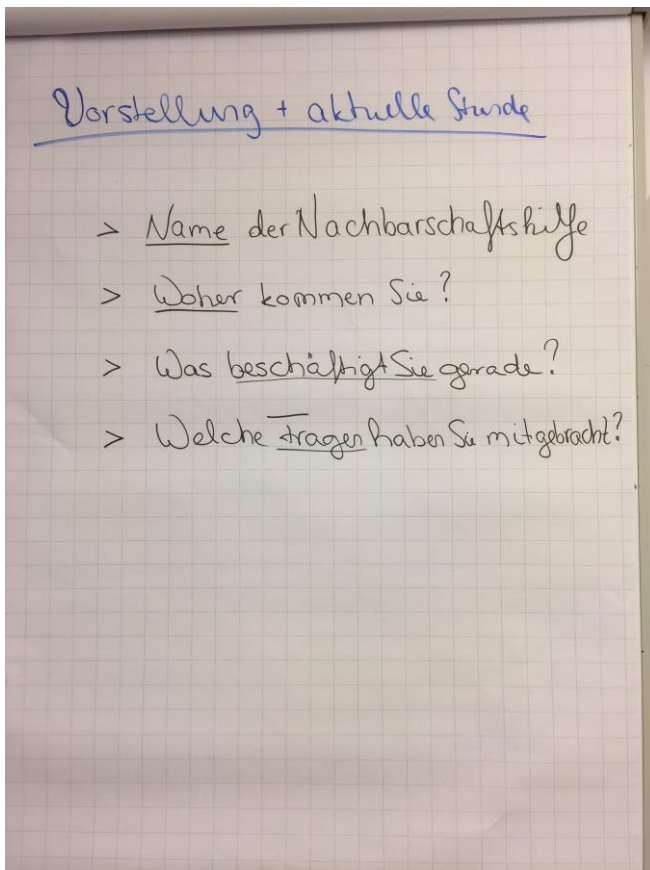 Vorstellung + aktuelle Stunde
> Name der Nachbarschaftshilfe
> Woher kommen Sie?
> Was beschäftigt Sie gerade?
> Welche Fragen haben Sie mitgebracht?